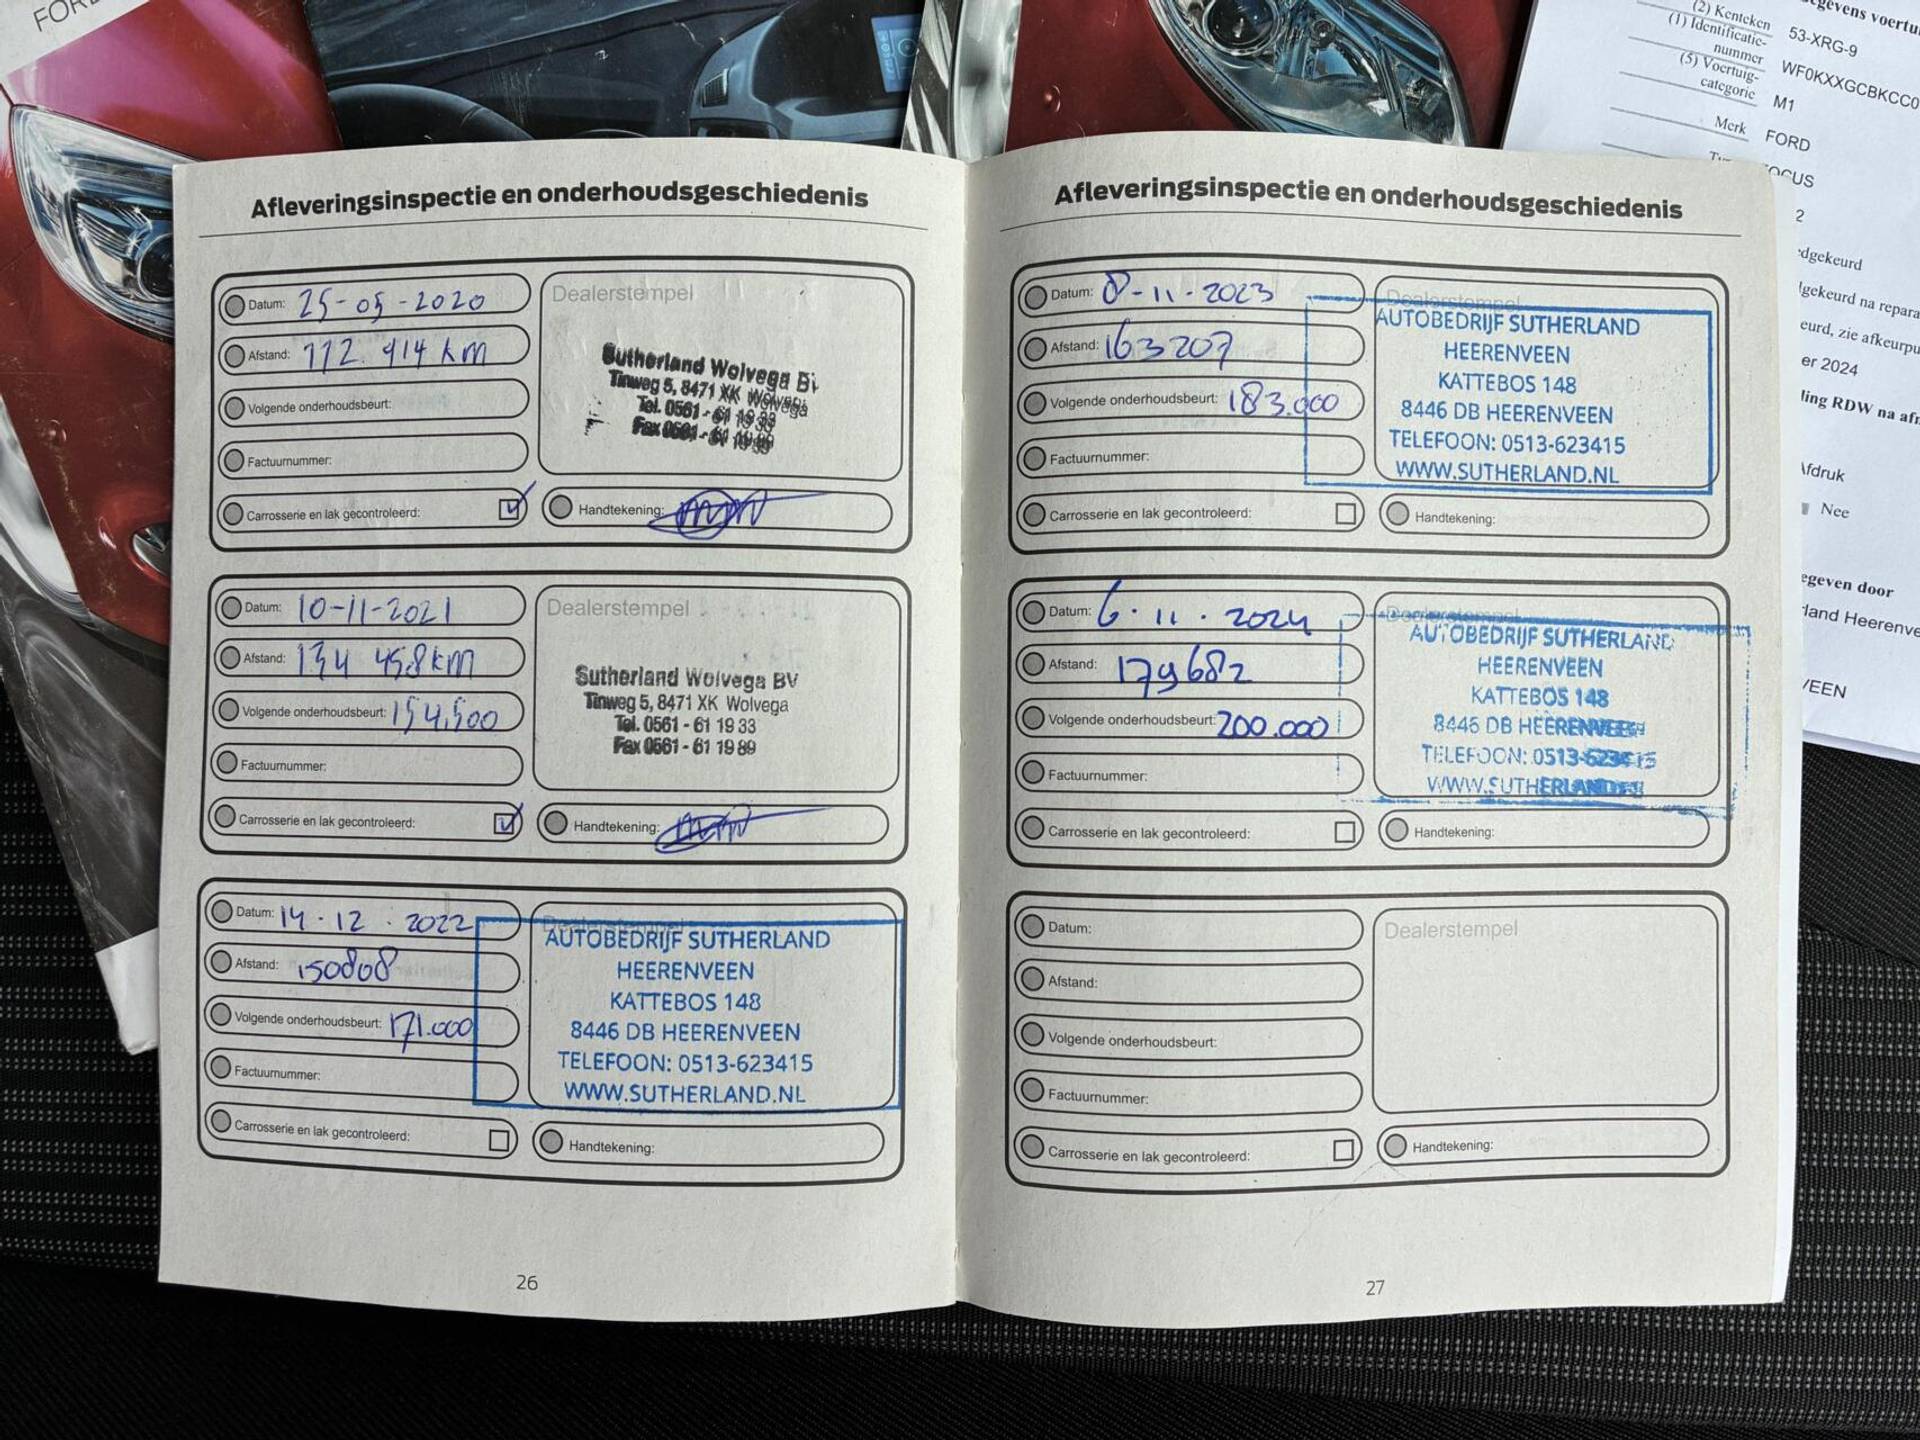 FOR
Afleveringsinspectie en onderhoudsgeschiedenis
Datum: 25-05-2020
Afstand: 112.414 km
Volgende onderhoudsbeurt:
Factuurnummer:
Carrosserie en lak gecontroleerd:
Dealerstempel
Sutherland Wolvega BV
Tinweg 5, 8471 XK Wolvega
Tel. 0561 - 61 19 33
Fax 0561 - 61 19 89
Handtekening:
Datum: 10-11-2021
Afstand: 134 458 km
Volgende onderhoudsbeurt: 154.500
Factuurnummer:
Carrosserie en lak gecontroleerd:
Dealerstempel
Sutherland Wolvega BV
Tinweg 5, 8471 XK Wolvega
Tel. 0561 - 61 19 33
Fax 0561 - 61 19 89
Handtekening:
Datum: 14-12-2022
Afstand: 150808
Volgende onderhoudsbeurt: 171.000
Factuurnummer:
Carrosserie en lak gecontroleerd:
Dealerstempel
AUTOBEDRIJF SUTHERLAND
HEERENVEEN
KATTEBOS 148
8446 DB HEERENVEEN
TELEFOON: 0513-623415
WWW.SUTHERLAND.NL
Handtekening:
26
Afleveringsinspectie en onderhoudsgeschiedenis
Datum: 8-11-2023
Afstand: 163207
Volgende onderhoudsbeurt: 183.000
Factuurnummer:
Carrosserie en lak gecontroleerd:
Dealerstempel
AUTOBEDRIJF SUTHERLAND
HEERENVEEN
KATTEBOS 148
8446 DB HEERENVEEN
TELEFOON: 0513-623415
WWW.SUTHERLAND.NL
Handtekening:
Datum: 6-11-2024
Afstand: 179682
Volgende onderhoudsbeurt: 200.000
Factuurnummer:
Carrosserie en lak gecontroleerd:
Dealerstempel
AUTOBEDRIJF SUTHERLAND
HEERENVEEN
KATTEBOS 148
8446 DB HEERENVEEN
TELEFOON: 0513-623415
WWW.SUTHERLAND.NL
Handtekening:
Datum:
Afstand:
Volgende onderhoudsbeurt:
Factuurnummer:
Carrosserie en lak gecontroleerd:
Dealerstempel
Handtekening:
27
egevens voertu
(2) Kenteken 53-XRG-9
(1) Identificatie-
nummer WF0KXXGCBKCC0
(5) Voertuig-
categorie M1
Merk FORD
OCUS
2
dgekeurd
gekeurd na repara
eurd, zie afkeurpu
er 2024
ling RDW na afr
fdruk
Nee
egeven door
land Heerenve
VEEN